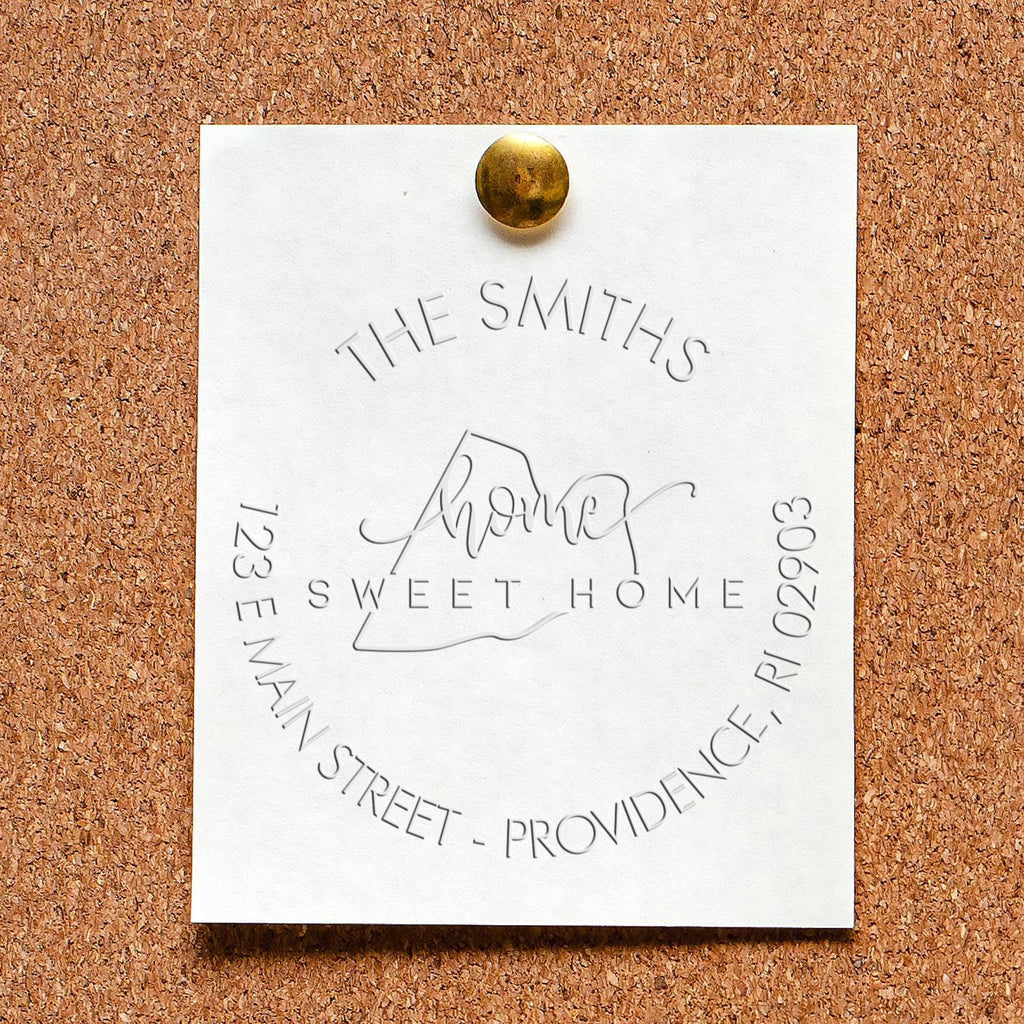 THE SMITHS
home
SWEET HOME
123 E MAIN STREET - PROVIDENCE, RI 02903